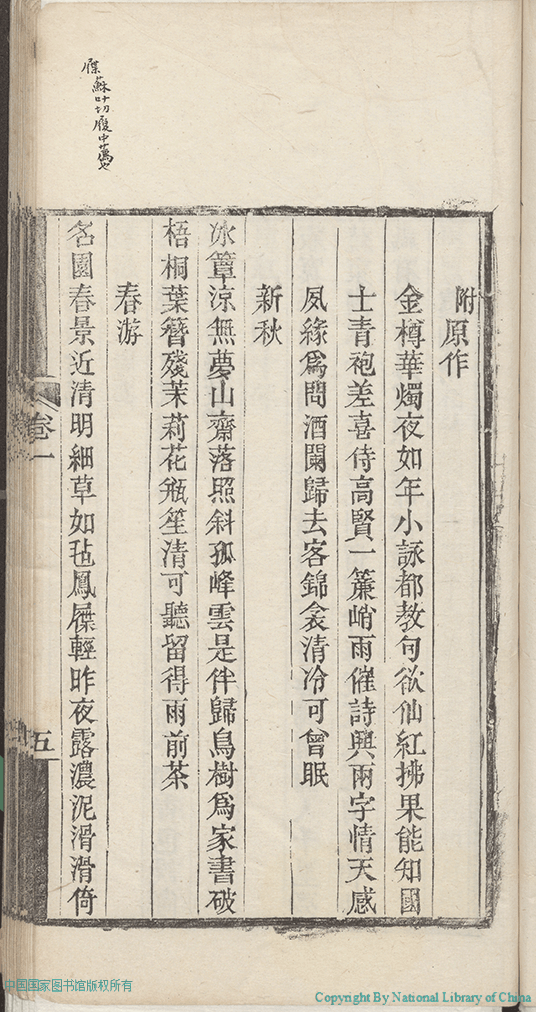 附原作
金樽華燭夜如年小詠都教句欲仙紅拂果能知國
士青袍差喜侍高賢一簾峭雨催詩興兩字情天感
夙緣爲問酒闌歸去客錦衾清冷可曾眠
新秋
冰簟涼無夢山齋落照斜孤峰雲是伴歸鳥樹爲家書破
梧桐葉簪殘茉莉花瓶笙清可聽留得雨前茶
春游
名園春景近清明細草如毡鳳屧輕昨夜露濃泥滑滑倚
卷一
五
屧蘇叶切履中薦也
中国国家图书馆版权所有
Copyright By National Library of China